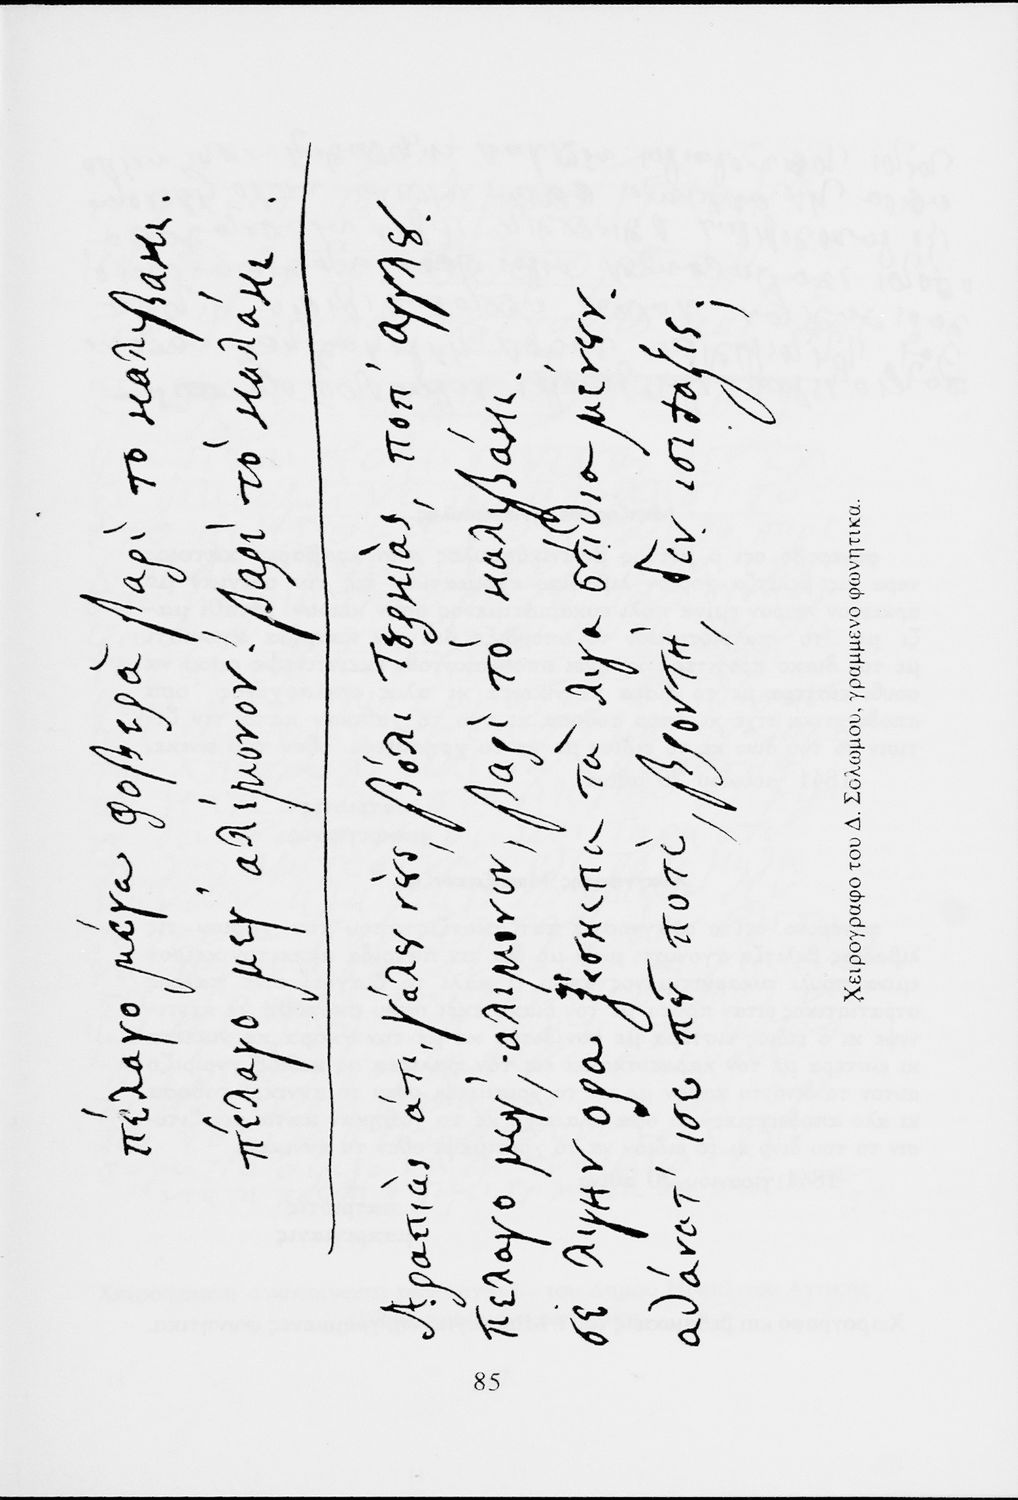 πέλαγο μέγα φοβερὰ βαρὶ το καλιβάκι.
πέλαγο μεγ' αλίμονον! βαρὶ τὸ καλάκι.
Αραπιὰς ατι, γαλενὲς βόλι Τȣρκιάς, ποπ' αγγλȣ.
πέλαγο μέγ', αλιμονον, βαρὶ τὸ καλιβάκι.
σὲ λιγην ορα ξεσκεπα τὰ λιγα στίθια μένȣν.
αθάνατ' ισε πȣ ποτὲ, βροντὴ, δεν ισιπαξις;
Χειρογραφο του Δ. Σολωμου, γραμμενο φωνητικα.
85